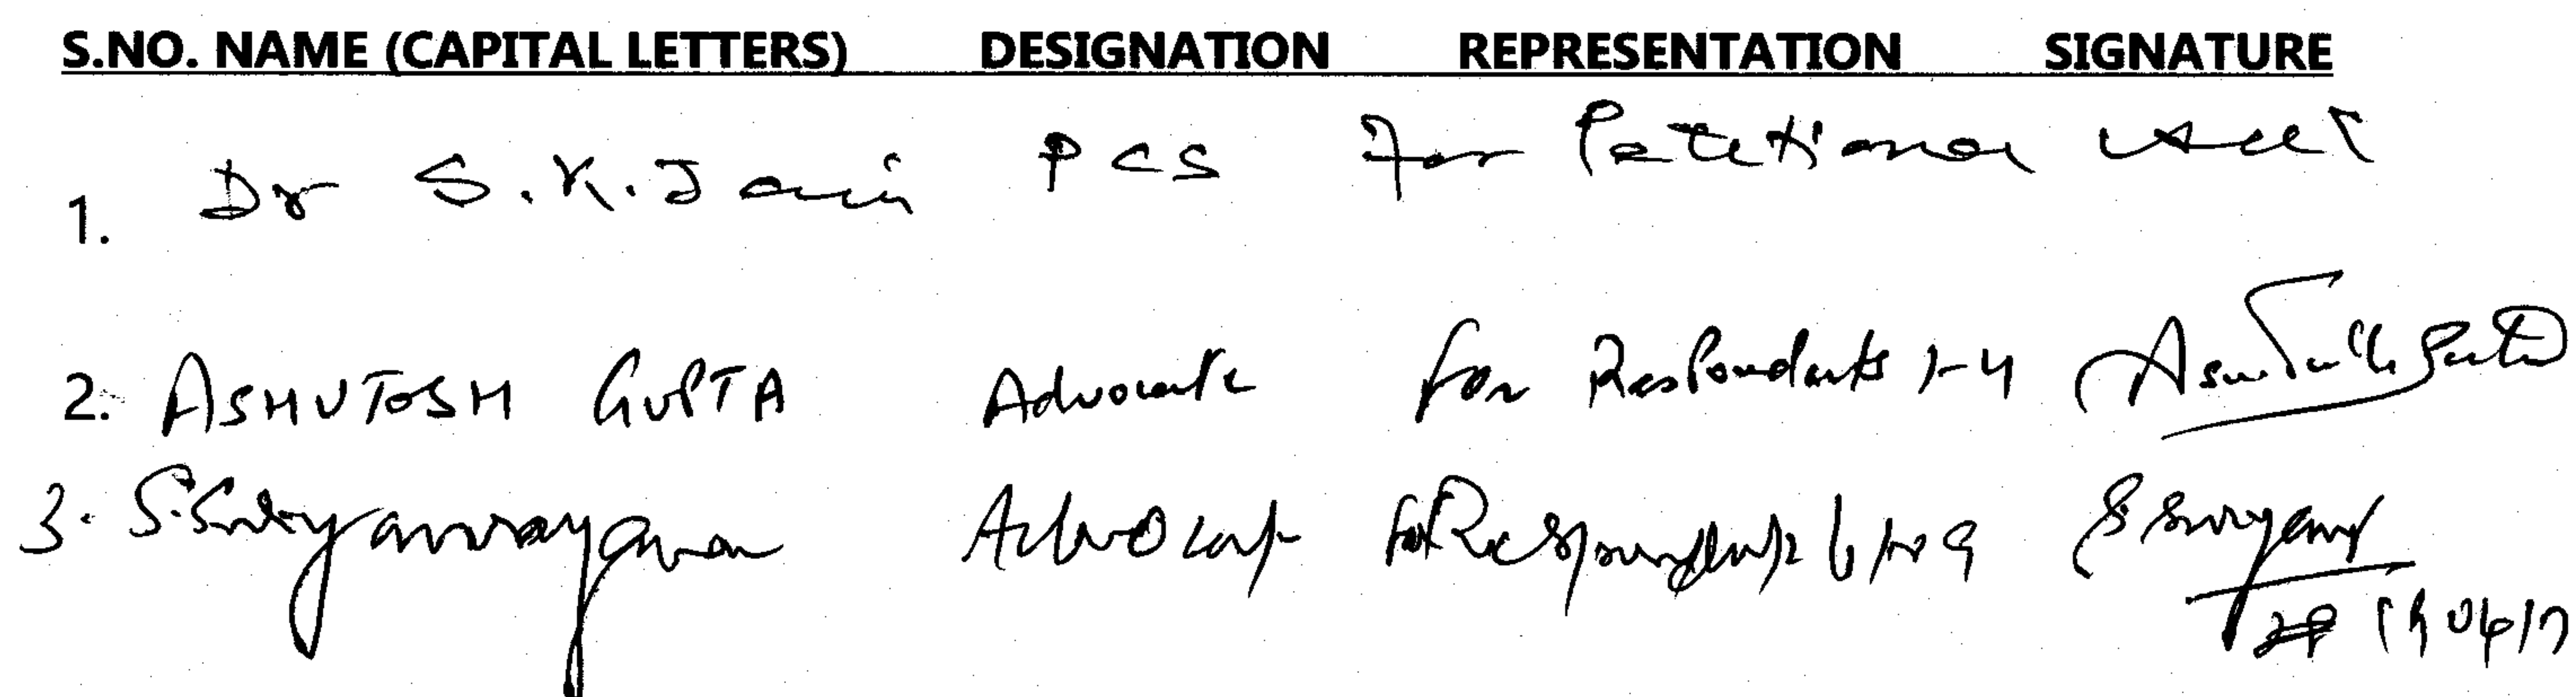 S.NO. NAME (CAPITAL LETTERS) DESIGNATION REPRESENTATION SIGNATURE
1. Dr S.K. Jain PCS For Petetioner
2. ASHUTOSH GUPTA Advocate for Respondents 1-4
3. S. Suryanarayanan Advocate for Respondents 6 to 9